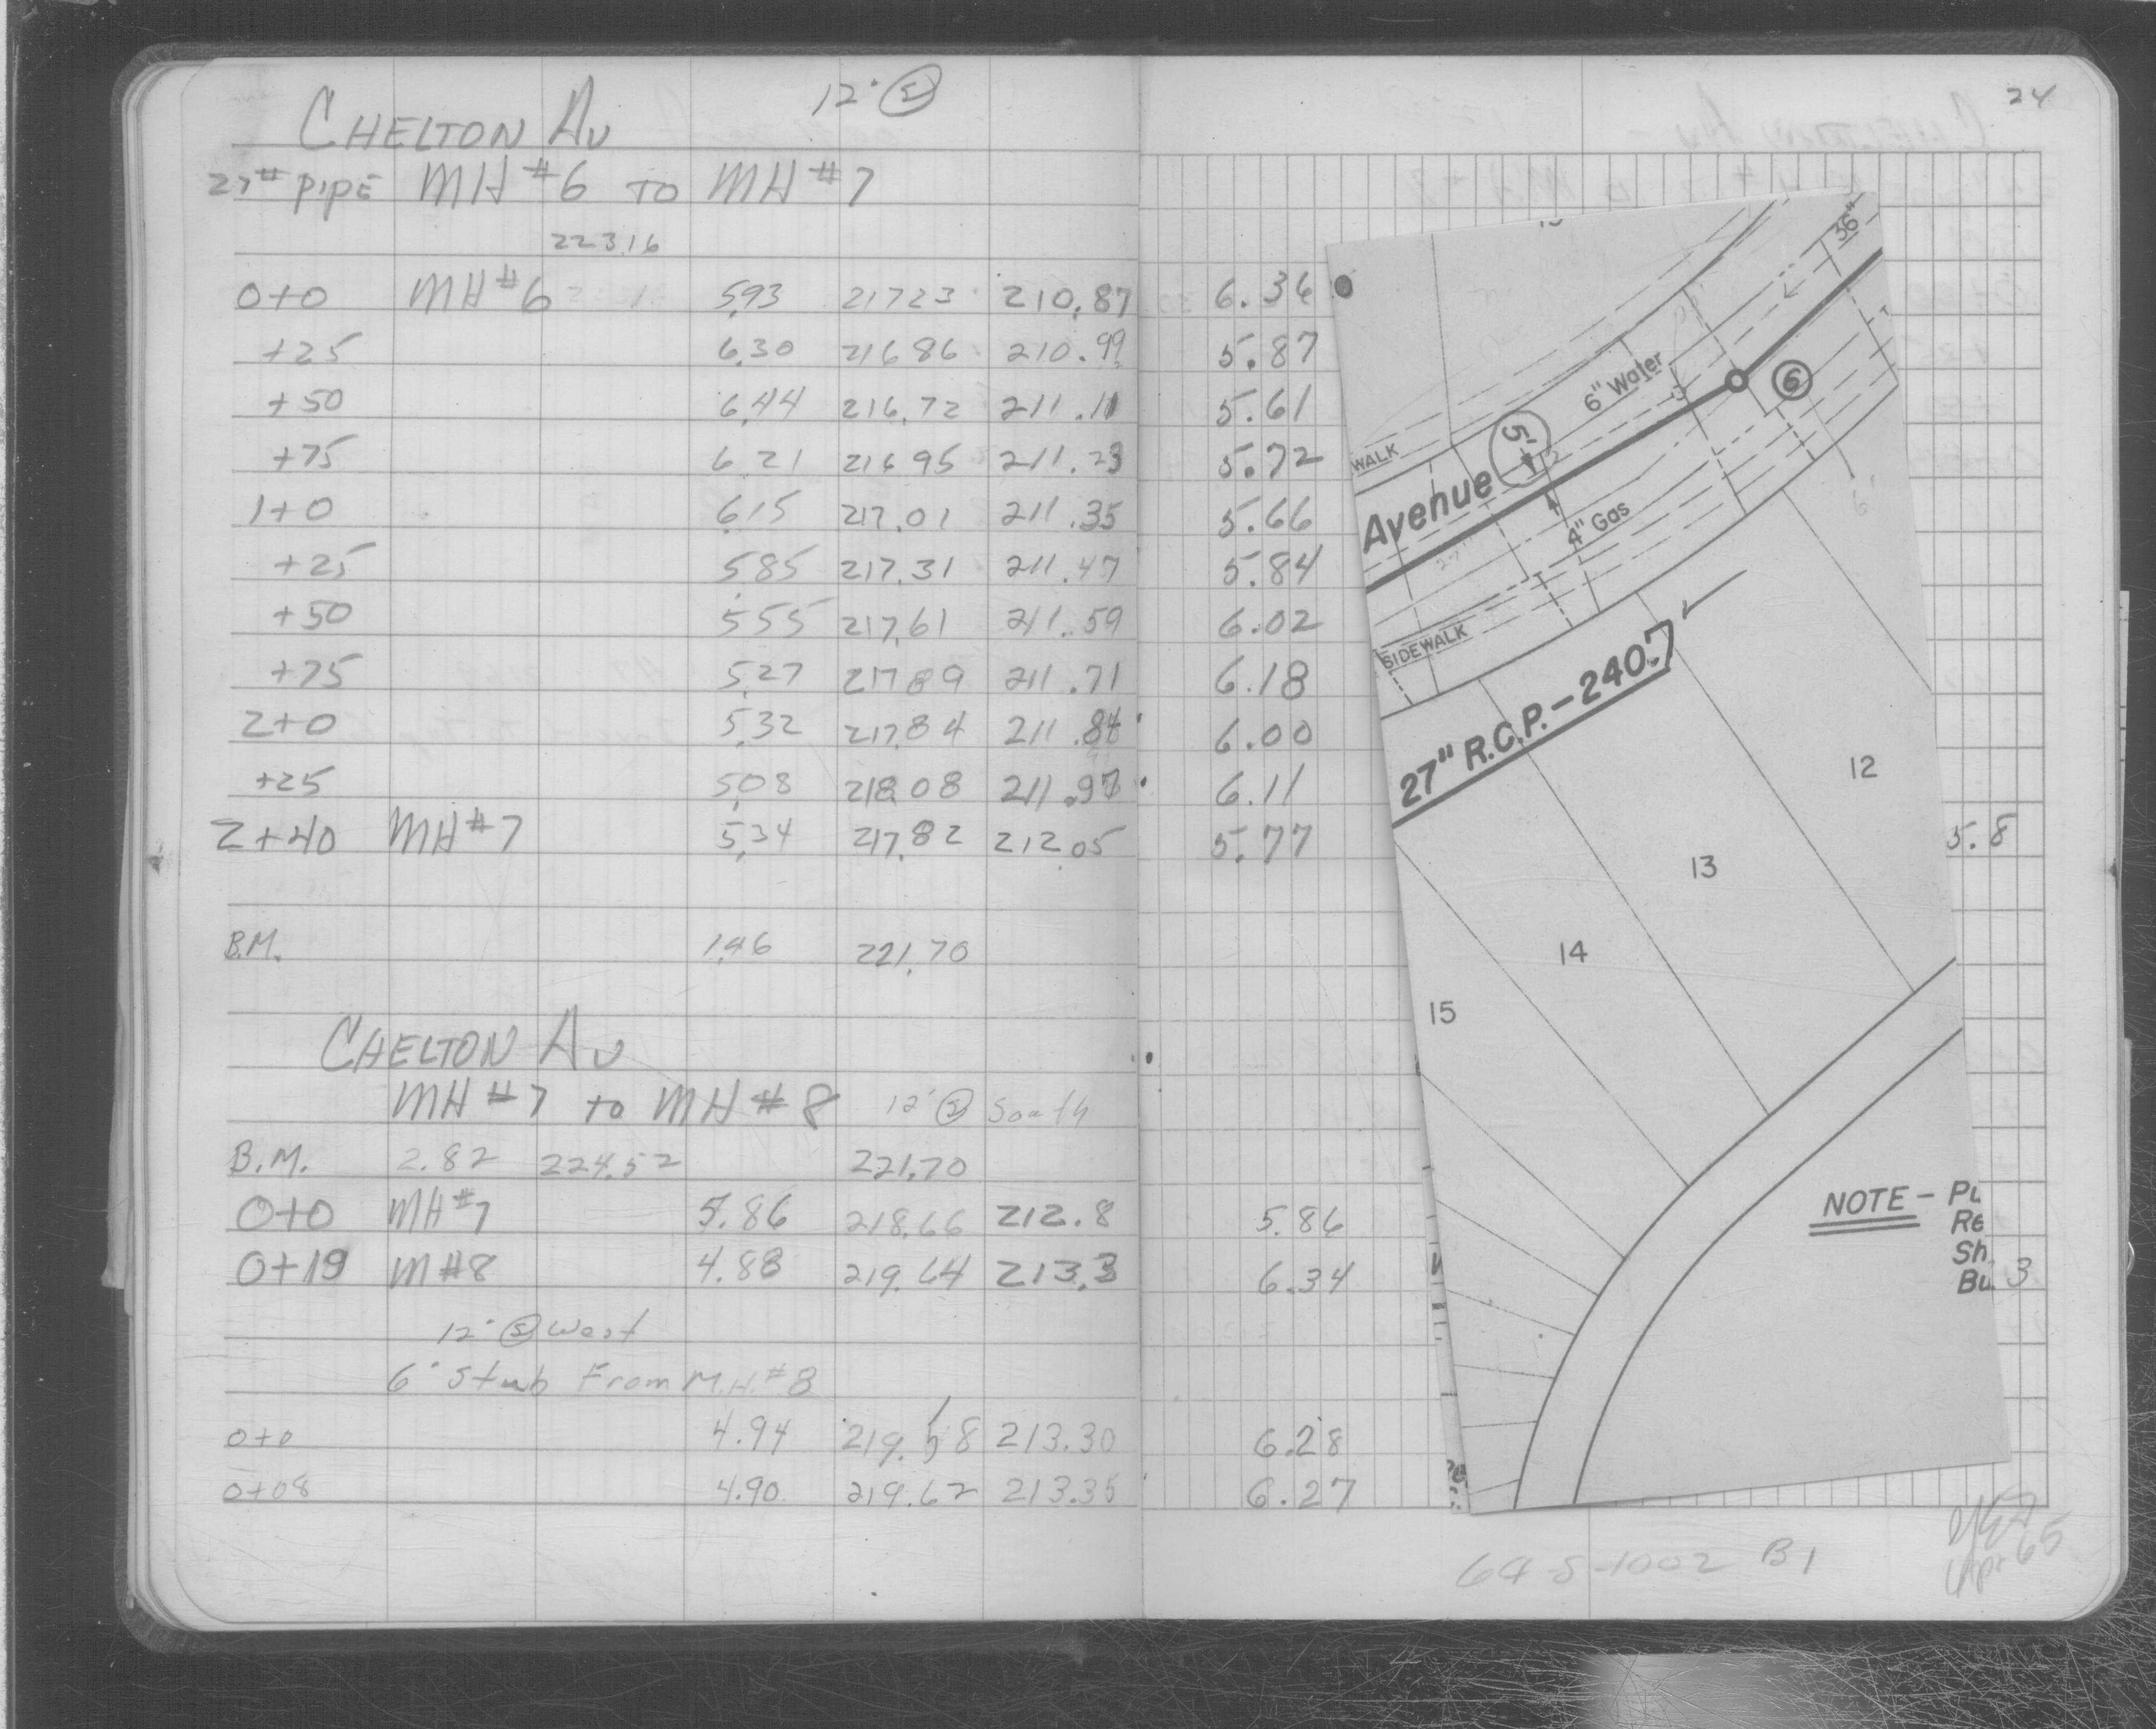 24
CHELTON AV 12" Ⓢ
27" PIPE MH #6 TO MH #7
223.16
0+0 MH #6 5.93 217.23 210.87 6.36
+25 6.30 216.86 210.99 5.87
+50 6.44 216.72 211.11 5.61
+75 6.21 216.95 211.23 5.72
1+0 6.15 217.01 211.35 5.66
+25 5.85 217.31 211.47 5.84
+50 5.55 217.61 211.59 6.02
+75 5.27 217.89 211.71 6.18
2+0 5.32 217.84 211.84 6.00
+25 5.08 218.08 211.97 6.11
2+40 MH #7 5.34 217.82 212.05 5.77
5.8
B.M. 1.46 221.70
CHELTON AV
MH #7 to MH #8 12" Ⓢ South
B.M. 2.82 224.52 221.70
0+0 MH #7 5.86 218.66 212.8 5.86
0+19 MH #8 4.88 219.64 213.3 6.34
3
12" Ⓢ West
6" Stub From M.H. #8
0+0 4.94 219.58 213.30 6.28
0+08 4.90 219.62 213.35 6.27
64-S-1002 B1
Apr 65
36"
6" Water
6
5'
WALK
Avenue
4" Gas
27"
6'
SIDEWALK
27" R.C.P. - 240.7
12
13
14
15
NOTE - PL
Re
Sh.
Bu